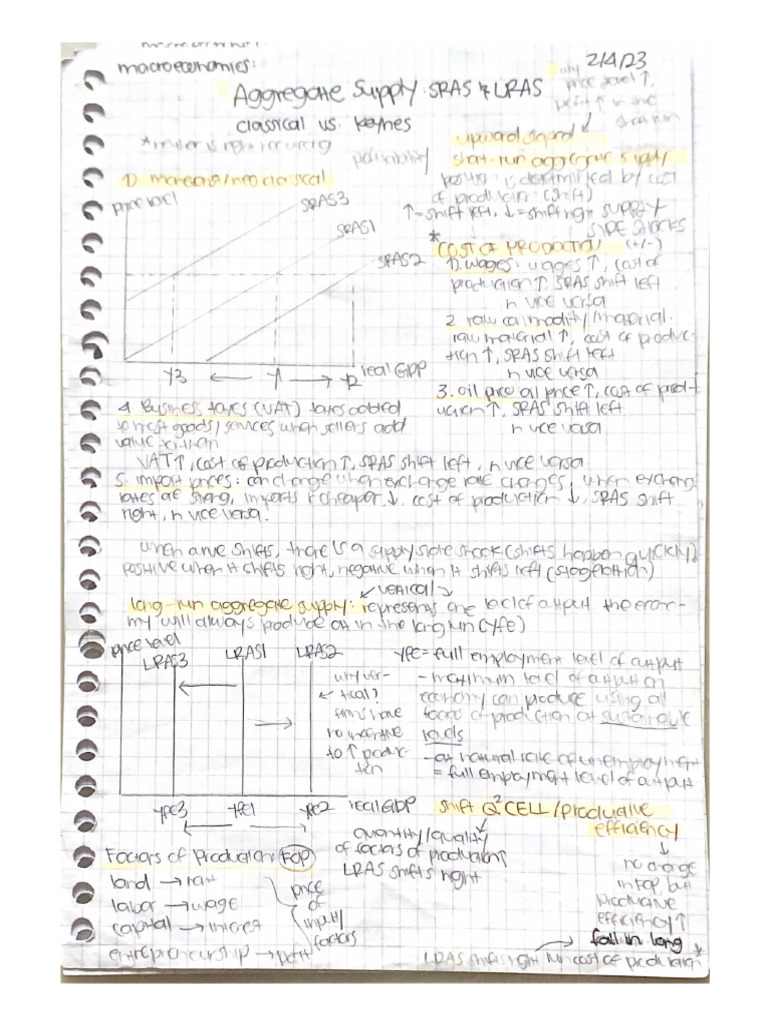 macroeconomics:
2/4/23
Aggregate Supply: SRAS & LRAS
classical vs. Keynes
why price level ↑,
profit ↑ in the
short run
profitability
upward sloped
short-run aggregate supply
position is determined by cost
of production (shift)
↑=shift left, ↓=shift right SUPPLY
SIDE SHOCKS
1) monetarist/neoclassical
price level
SRAS3
SRAS1
SRAS2
Y3 ← Y1 → Y2
real GDP
* COST OF PRODUCTION (+/-)
1). wages: wages ↑, cost of
production ↑, SRAS shift left
n vice versa
2 raw commodity/material.
raw material ↑, cost of produc-
tion ↑, SRAS shift left
n vice versa
3. oil price oil price ↑, cost of prod-
uction ↑, SRAS shift left
n vice versa
4 Business taxes (VAT) taxes added
to most goods/services when sellers add
value to them
VAT ↑, cost of production ↑, SRAS shift left, n vice versa
5. import prices: can change when exchange rate changes, when exchang
rates are strong, imports r cheaper ↓. cost of production ↓, SRAS shift
right, n vice versa.
when curve shifts, there is a supply side shock (shifts happen quickly)
positive when it shifts right, negative when it shifts left (stagflation)
vertical
long-run aggregate supply: represents the level of output the econo-
my will always produce at in the long run (yfe)
price level
LRAS3
LRAS1
LRAS2
why ver-
tical?
firms have
no incentive
to ↑ produc-
tion
YFE3
YFE1
YFE2
real GDP
YFE = full employment level of output
- maximum level of output an
economy can produce using all
factors of production at sustainable
levels
- at natural rate of unemployment
= full employment level of output
shift Q²CELL/productive
efficiency
quantity/quality
of factors of production ↑
LRAS shifts right
no change
in FOP, but
productive
efficiency ↑
fall in long
LRAS shifts right run cost of production *
Factors of Production: FOP
land → rent
labor → wage
capital → interest
entrepreneurship → profit
price
of
input/
factors